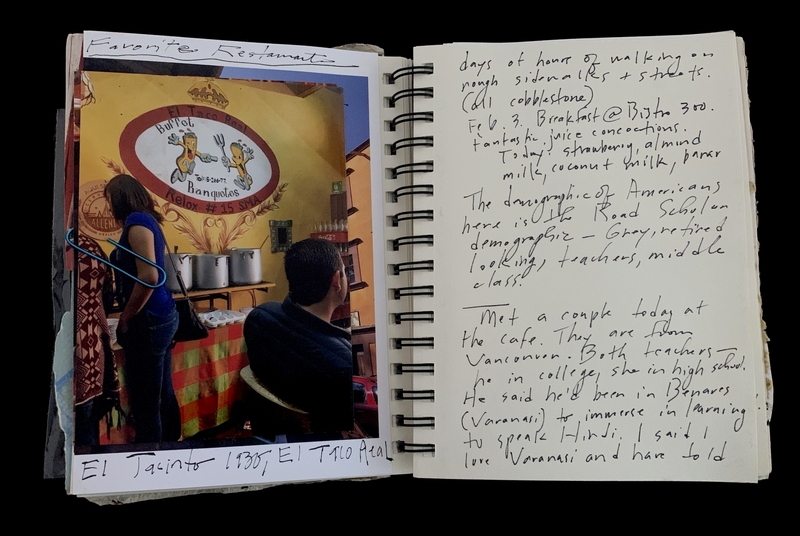 Favorite Restaurants
El Taco Real
Buffet
Banquetes
Relox # 15 SMA
El Jacinto 1930, El Taco Real
days of hours of walking on
rough sidewalks + streets.
(all cobblestone)
Feb. 3. Breakfast @ Bistro 300.
Fantastic juice concoctions.
Today: strawberry, almond
milk, coconut milk, banan
The demographic of Americans
here is the Road Scholar
demographic – Grey, retired
looking, teachers, middle
class.
Met a couple today at
the cafe. They are from
Vancouver. Both teachers –
he in college, she in high school.
He said he'd been in Benares
(Varanasi) to immerse in learning
to speak Hindi. I said I
love Varanasi and have told